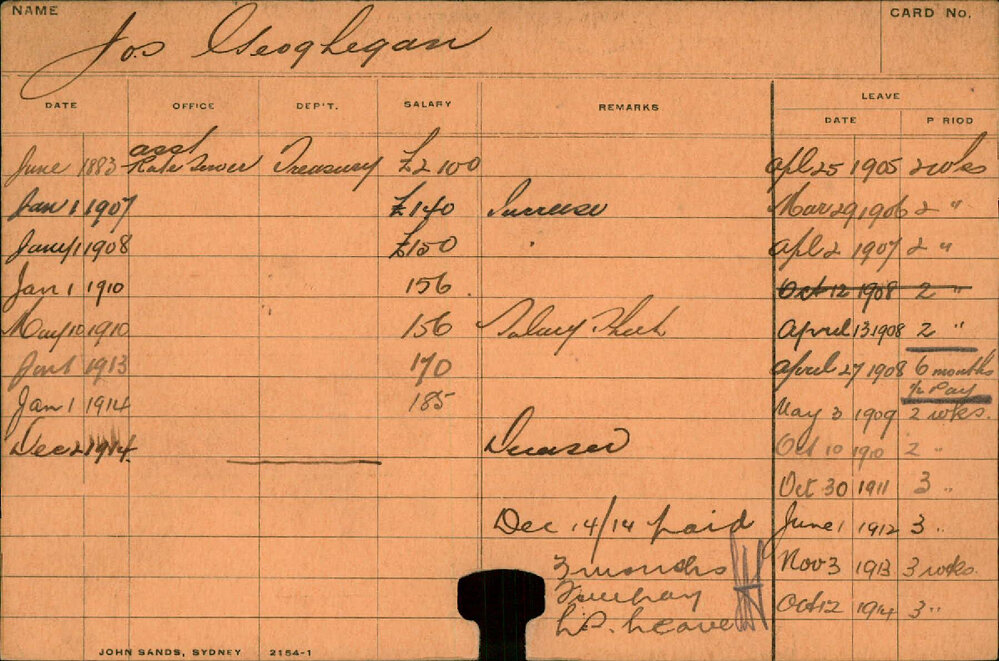 NAME
CARD No.
Jos Geoghegan
DATE OFFICE DEP'T. SALARY REMARKS LEAVE
DATE P RIOD
asst
June 1883 Treasury £2 100 Apl 25 1905 2 wks
Jan 1 1907 £140 Increase Mar 29 1906 2 "
Jany 1 1908 £150 " Apl 2 1907 2 "
Jan 1 1910 156 Oct 12 1908 2 "
May 10 1910 156 Salary April 13 1908 2 "
Jan 1 1913 170 April 27 1908 6 months
½ Pay
Jan 1 1914 185 May 3 1909 2 wks.
Dec 2 1914 Deceased Oct 10 1910 2 "
Oct 30 1911 3 "
Dec 14/14 paid June 1 1912 3 "
3 months Nov 3 1913 3 wks.
Oct 12 1914 3 "
Leave
JOHN SANDS, SYDNEY 2154-1